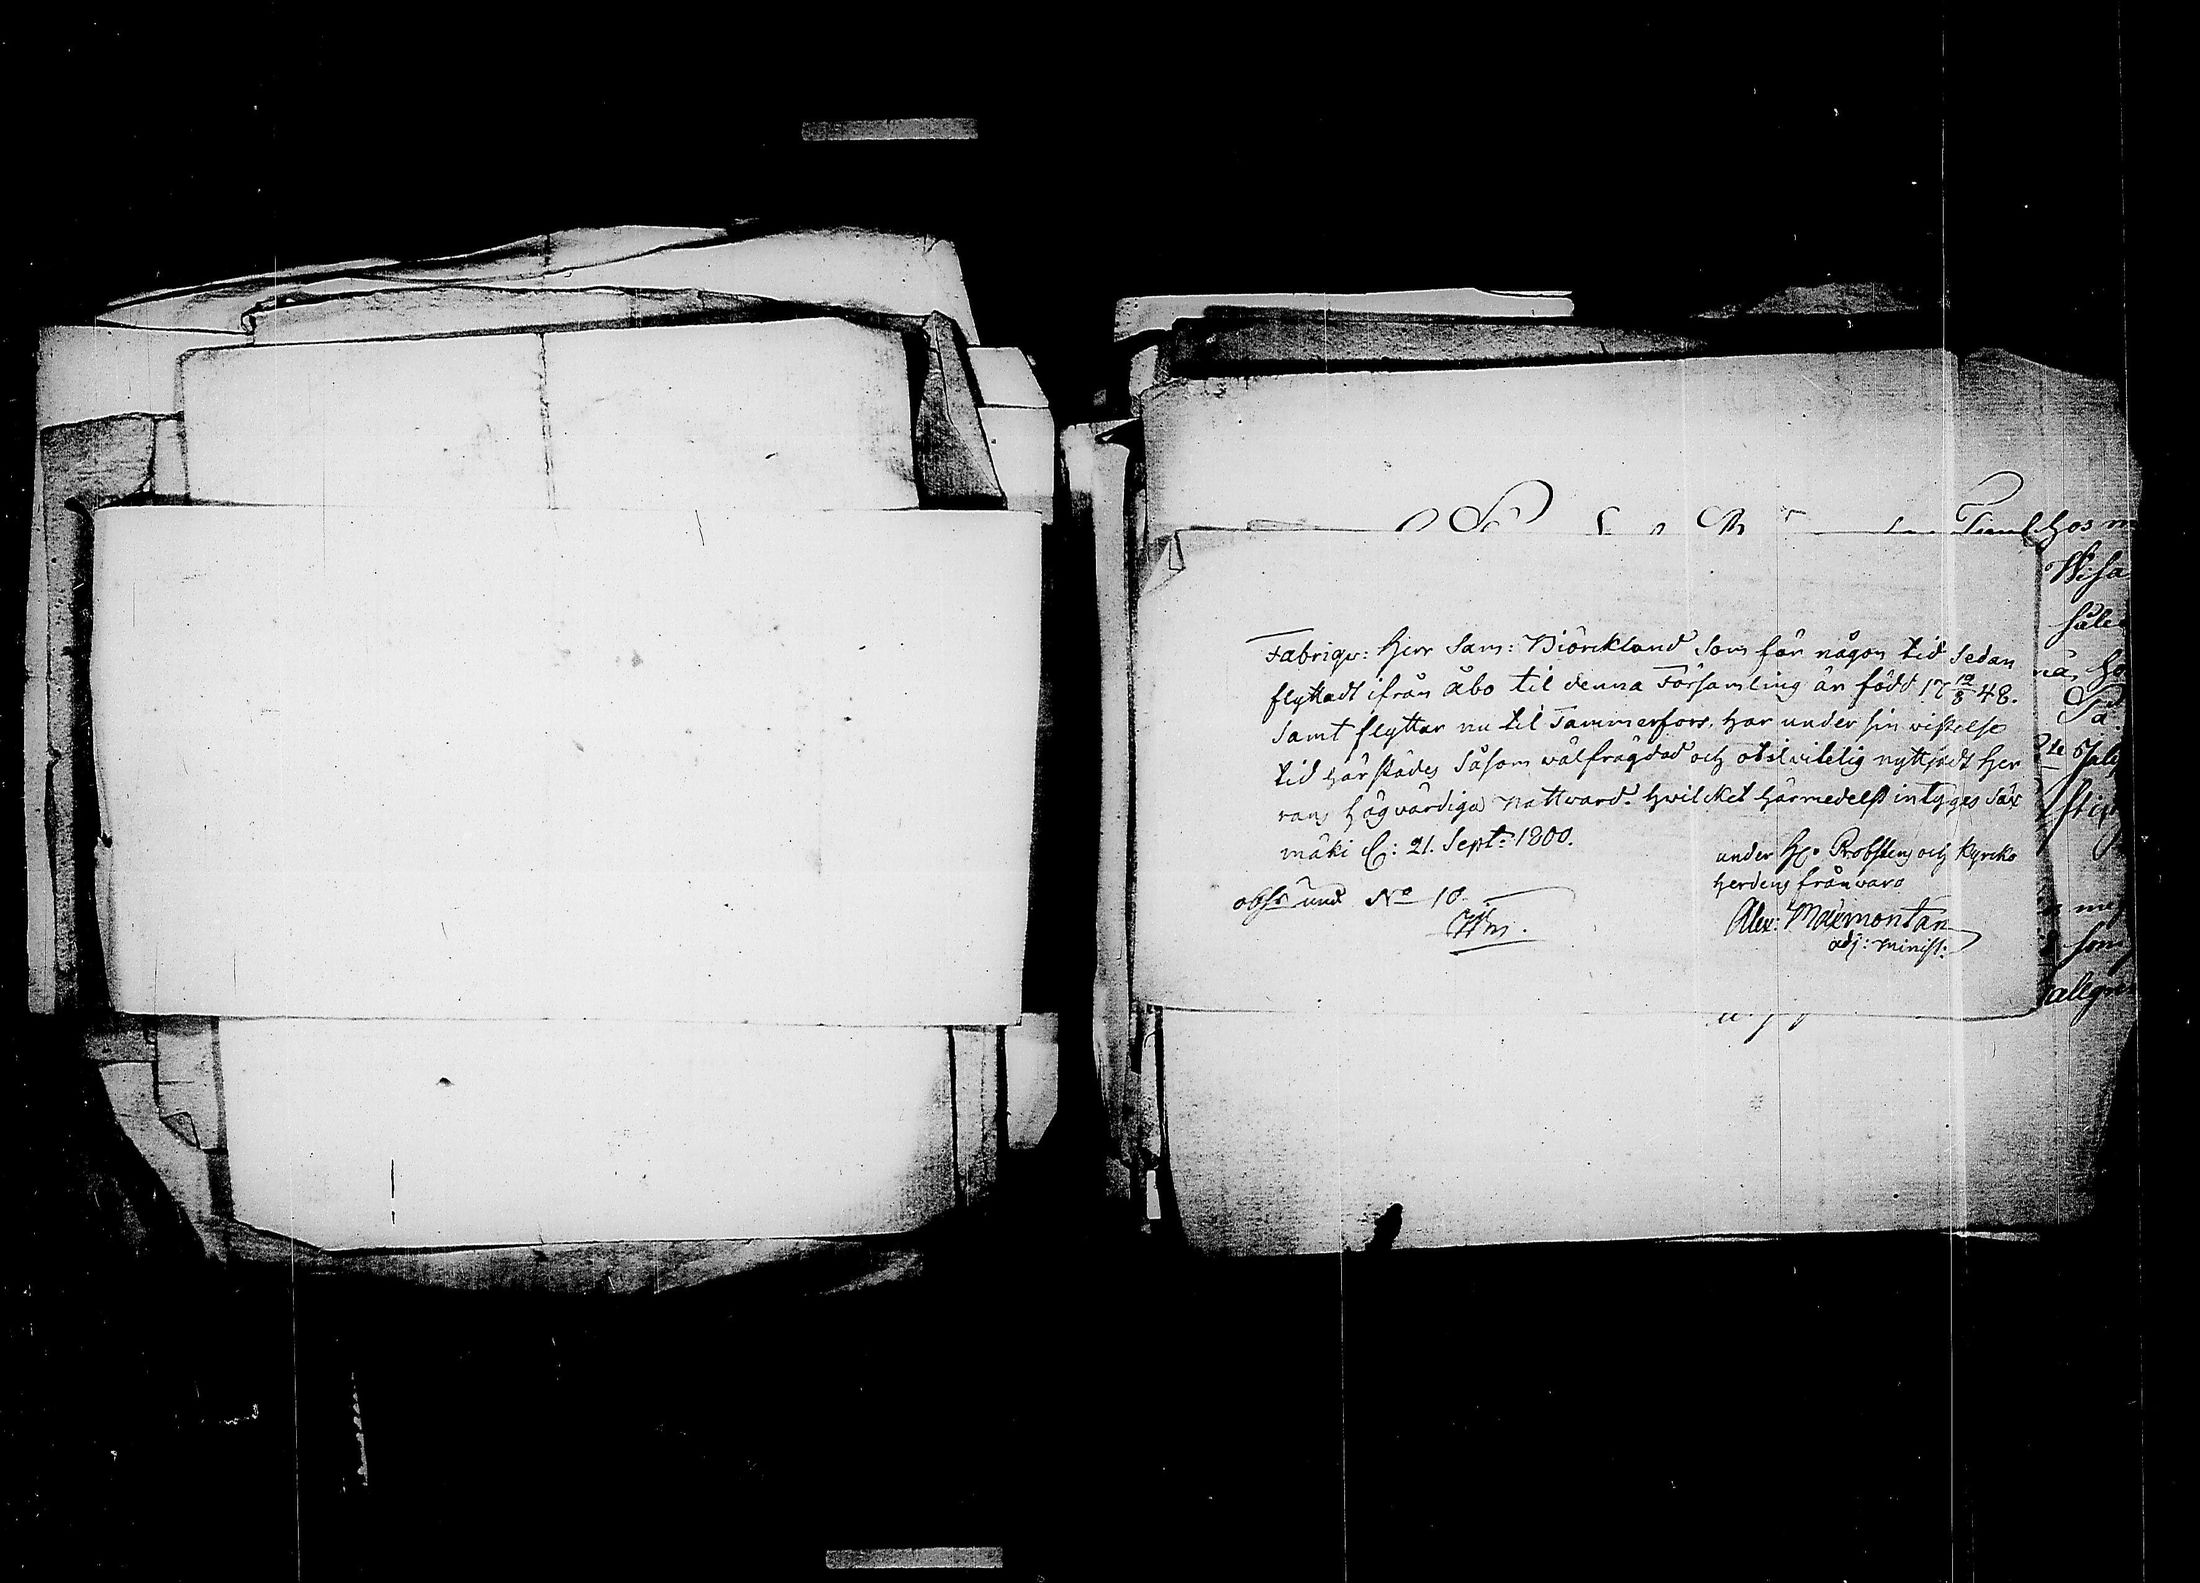 Fabriqv: Herr Sam: Biörcklund som för någon tid sedan
flyttadt ifrån Åbo til denna Församling är född 17 19/8 48.
samt flyttar nu til Tammerfors. Har under sin vistelse
tid härstädes såsom välfrägdad och oklvitelig nyttjadt Her
rans Högvärdiga Nattvard. Hvilcket härmedelst intygges Säx
mäki C: 21. Sept: 1800.
under H. Probstens och Kyrcko
herdens frånvaro
Alex: Maxmontan
adj: minist:
No 10.
Hos
Wisa
såle
På
som